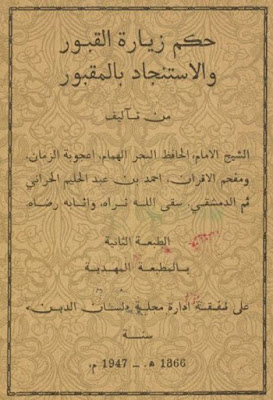 حكم زيارة القبور
والاستنجاد بالمقبور
من تأليف
الشيخ الامام، الحافظ البحر الهمام، اعجوبة الزمان،
ومفحم الاقران، احمد بن عبد الحليم الحراني
ثم الدمشقي، سقى الله ثراه، واثابه رضاه،
الطبعة الثانية
بالمطبعة المهدية
على نفقة ادارة مجلة «لسان الدين»
سنة
1366 ه‍ ـ 1947 م.